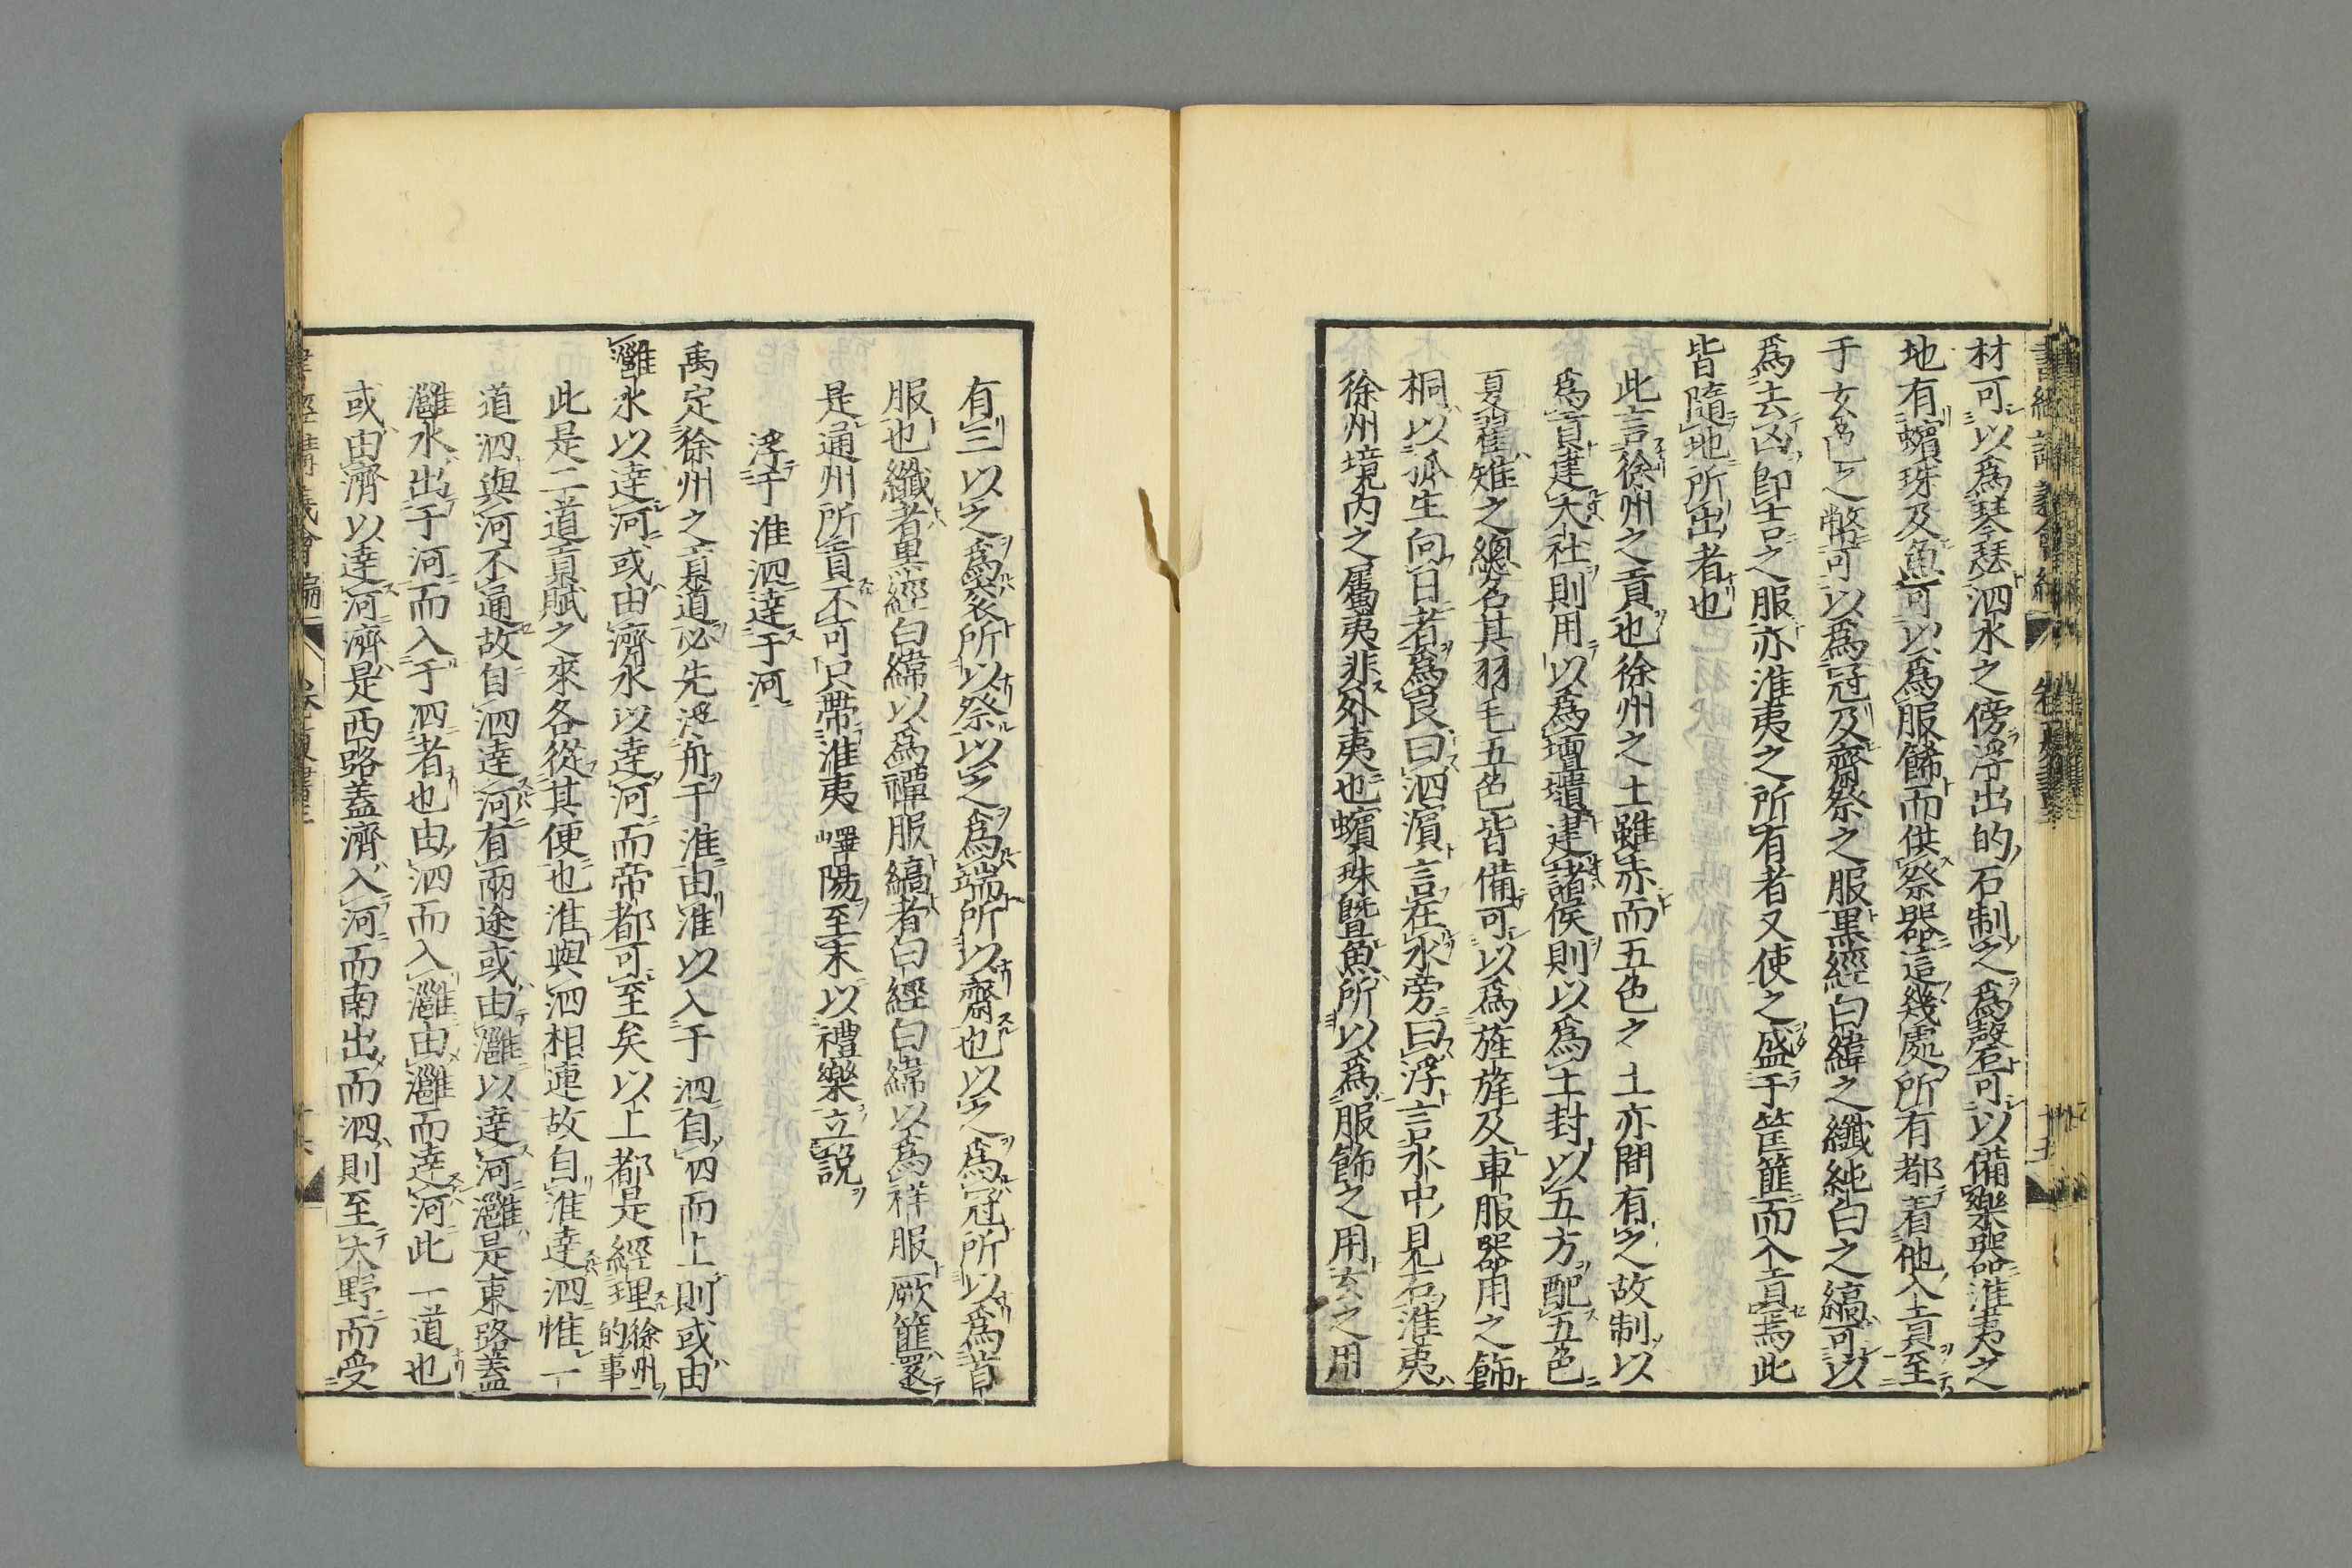 材可以爲琴瑟泗水之傍浮出的石制之爲磬石可以備樂器淮夷之
地有蠙珠及魚可以爲服餙而供祭器這幾處所有都着他入貢至
于玄色之幣可以爲冠及齋祭之服黒經白緯之纖純白之縞可以
爲去凶即吉之服亦淮夷之所有者又使之盛于筐篚而入貢焉此
皆隨地所出者也
此言徐州之貢也徐州之土雖赤而五色之土亦間有之故制以
爲貢建大社則用以爲壇壝建諸侯則以爲土封以五方配五色
夏翟雉之總名其羽毛五色皆備可以爲旌旄及車服器用之飾
桐以孤生向日者爲良曰泗濱言在水旁曰浮言水中見石淮夷
徐州境内之屬夷非外夷也蠙珠曁魚所以爲服飾之用玄之用
有三以之爲衮所以祭以之爲端所以齋也以之爲冠所以爲首
服也纖者黒經白緯以爲禫服縞者白經白緯以爲祥服厥篚還
是通州所貢不可只帶淮夷嶧陽至末以禮樂立説
浮于淮泗達于河
禹定徐州之貢道必先浮舟于淮由淮以入于泗自泗而上則或由
灉水以達河或由濟水以達河而帝都可至矣以上都是經理徐州的事
此是二道貢賦之來各從其便也淮與泗相連故自淮達泗惟一
道泗與河不通故自泗達河有兩途或由灉以達河灉是東路蓋
灉水出于河而入于泗者也由泗而入灉由灉而達河此一道也
或由濟以達河濟是西路蓋濟入河而南出而泗則至大野而受